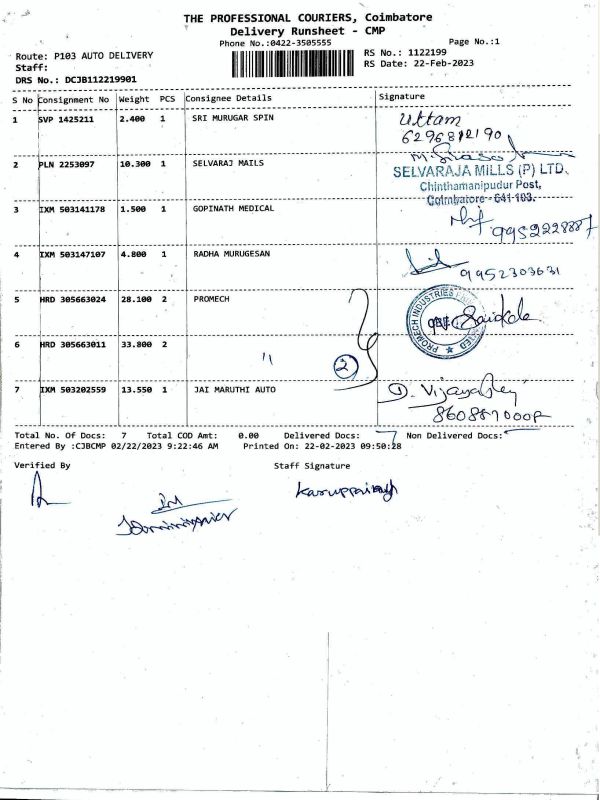 THE PROFESSIONAL COURIERS, Coimbatore
Delivery Runsheet - CMP
Phone No.:0422-3505555
Page No.:1
Route: P103 AUTO DELIVERY
RS No.: 1122199
Staff:
RS Date: 22-Feb-2023
DRS No.: DCJB112219901
S No Consignment No Weight PCS Consignee Details Signature
1 SVP 1425211 2.400 1 SRI MURUGAR SPIN
Uttam
6296812190
2 PLN 2253097 10.300 1 SELVARAJ MAILS
SELVARAJA MILLS (P) LTD.
Chinthamanipudur Post,
Coimbatore - 641 103.
3 IXM 503141178 1.500 1 GOPINATH MEDICAL
9952228887
4 IXM 503147107 4.800 1 RADHA MURUGESAN
9952303631
5 HRD 305663024 28.100 2 PROMECH
PROMECH INDUSTRIES
6 HRD 305663011 33.800 2
" 2
7 IXM 503202559 13.550 1 JAI MARUTHI AUTO
D. Vijaya
Total No. Of Docs: 7 Total COD Amt: 0.00 Delivered Docs: 7 Non Delivered Docs:
Entered By :CJBCMP 02/22/2023 9:22:46 AM Printed On: 22-02-2023 09:50:28
Verified By Staff Signature